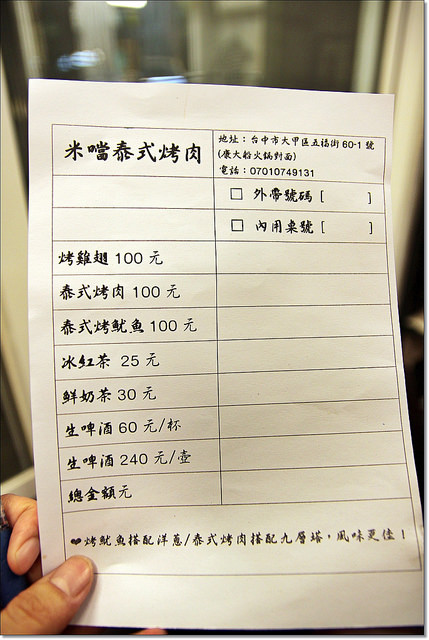 米噹泰式烤肉
地址：台中市大甲區五福街60-1 號
(康大船火鍋對面)
電話：07010749131
□ 外帶號碼 [ ]
□ 內用桌號 [ ]
烤雞翅 100 元
泰式烤肉 100 元
泰式烤魷魚 100 元
冰紅茶 25 元
鮮奶茶 30 元
生啤酒 60 元/杯
生啤酒 240 元/壺
總金額元
❤烤魷魚搭配洋蔥/泰式烤肉搭配九層塔，風味更佳！